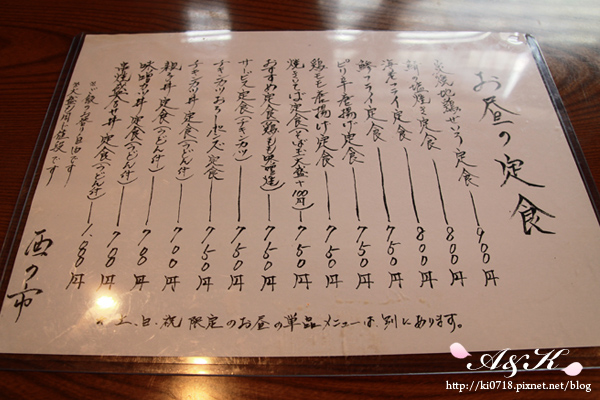 お昼の定食
炭焼地鶏せいろ定食 900円
鯖の塩焼き定食 800円
海老フライ定食 800円
鯵フライ定食 750円
ピリ辛唐揚げ定食 750円
鶏もも唐揚げ定食 750円
焼きそば定食(そば玉大盛+100円) 750円
おすすめ定食(鶏もも照焼) 750円
サービス定食(チキンカツ) 750円
チキンカツおろしポン酢定食 750円
親子丼定食(うどん付) 700円
味噌カツ丼定食(うどん付) 780円
定食(うどん付) 780円
1.080円
西の市
土、日、祝限定のお昼の単品メニューは、別にあります。
A&K
http://ki0718.pixnet.net/blog